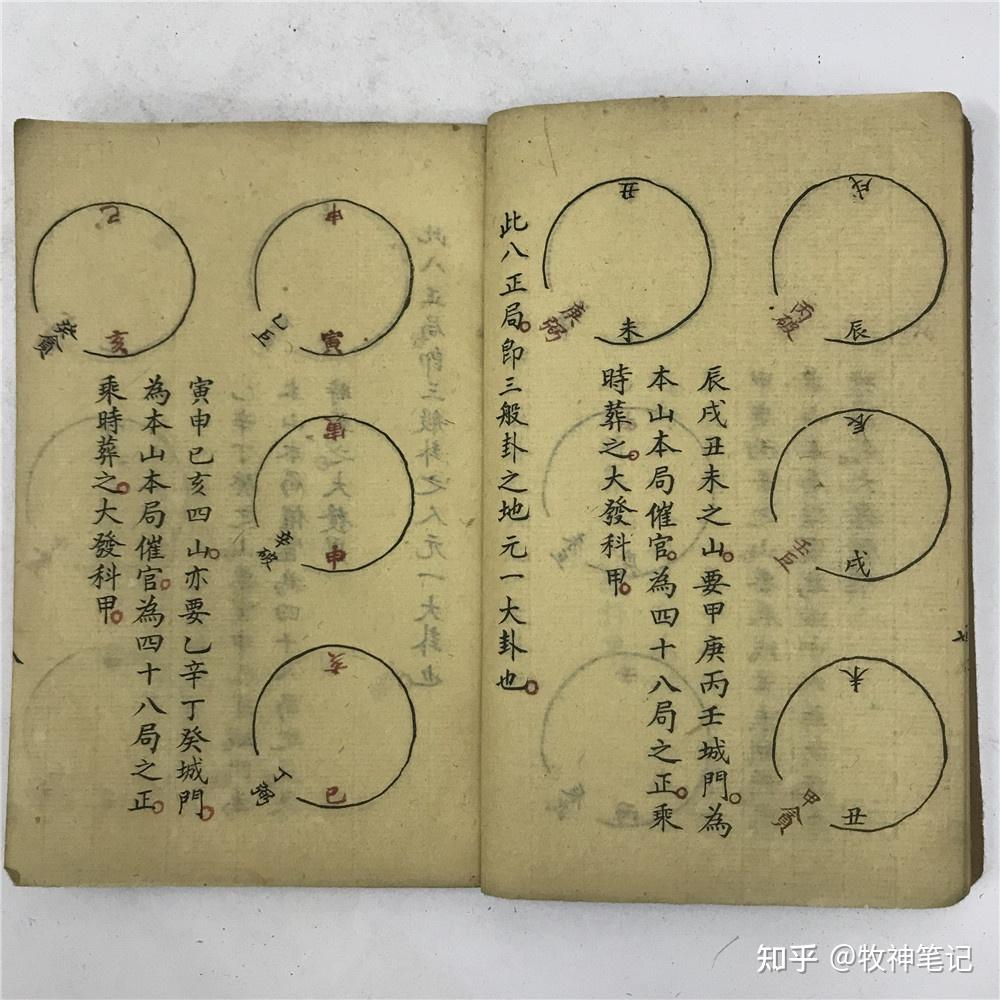 戌
丙破
辰
辰
壬巨
戌
未
甲貪
丑
辰戌丑未之山。要甲庚丙壬城門。為
本山本局催官。為四十八局之正。乘
時葬之。大發科甲。
丑
庚弼
未
此八正局。即三般卦之地元一大卦也。
申
乙巨
寅
寅
辛破
申
亥
丁
巳
寅申巳亥四山。亦要乙辛丁癸城門。
為本山本局催官。為四十八局之正。
乘時葬之。大發科甲。
巳
癸貪
亥
知乎 @牧神笔记